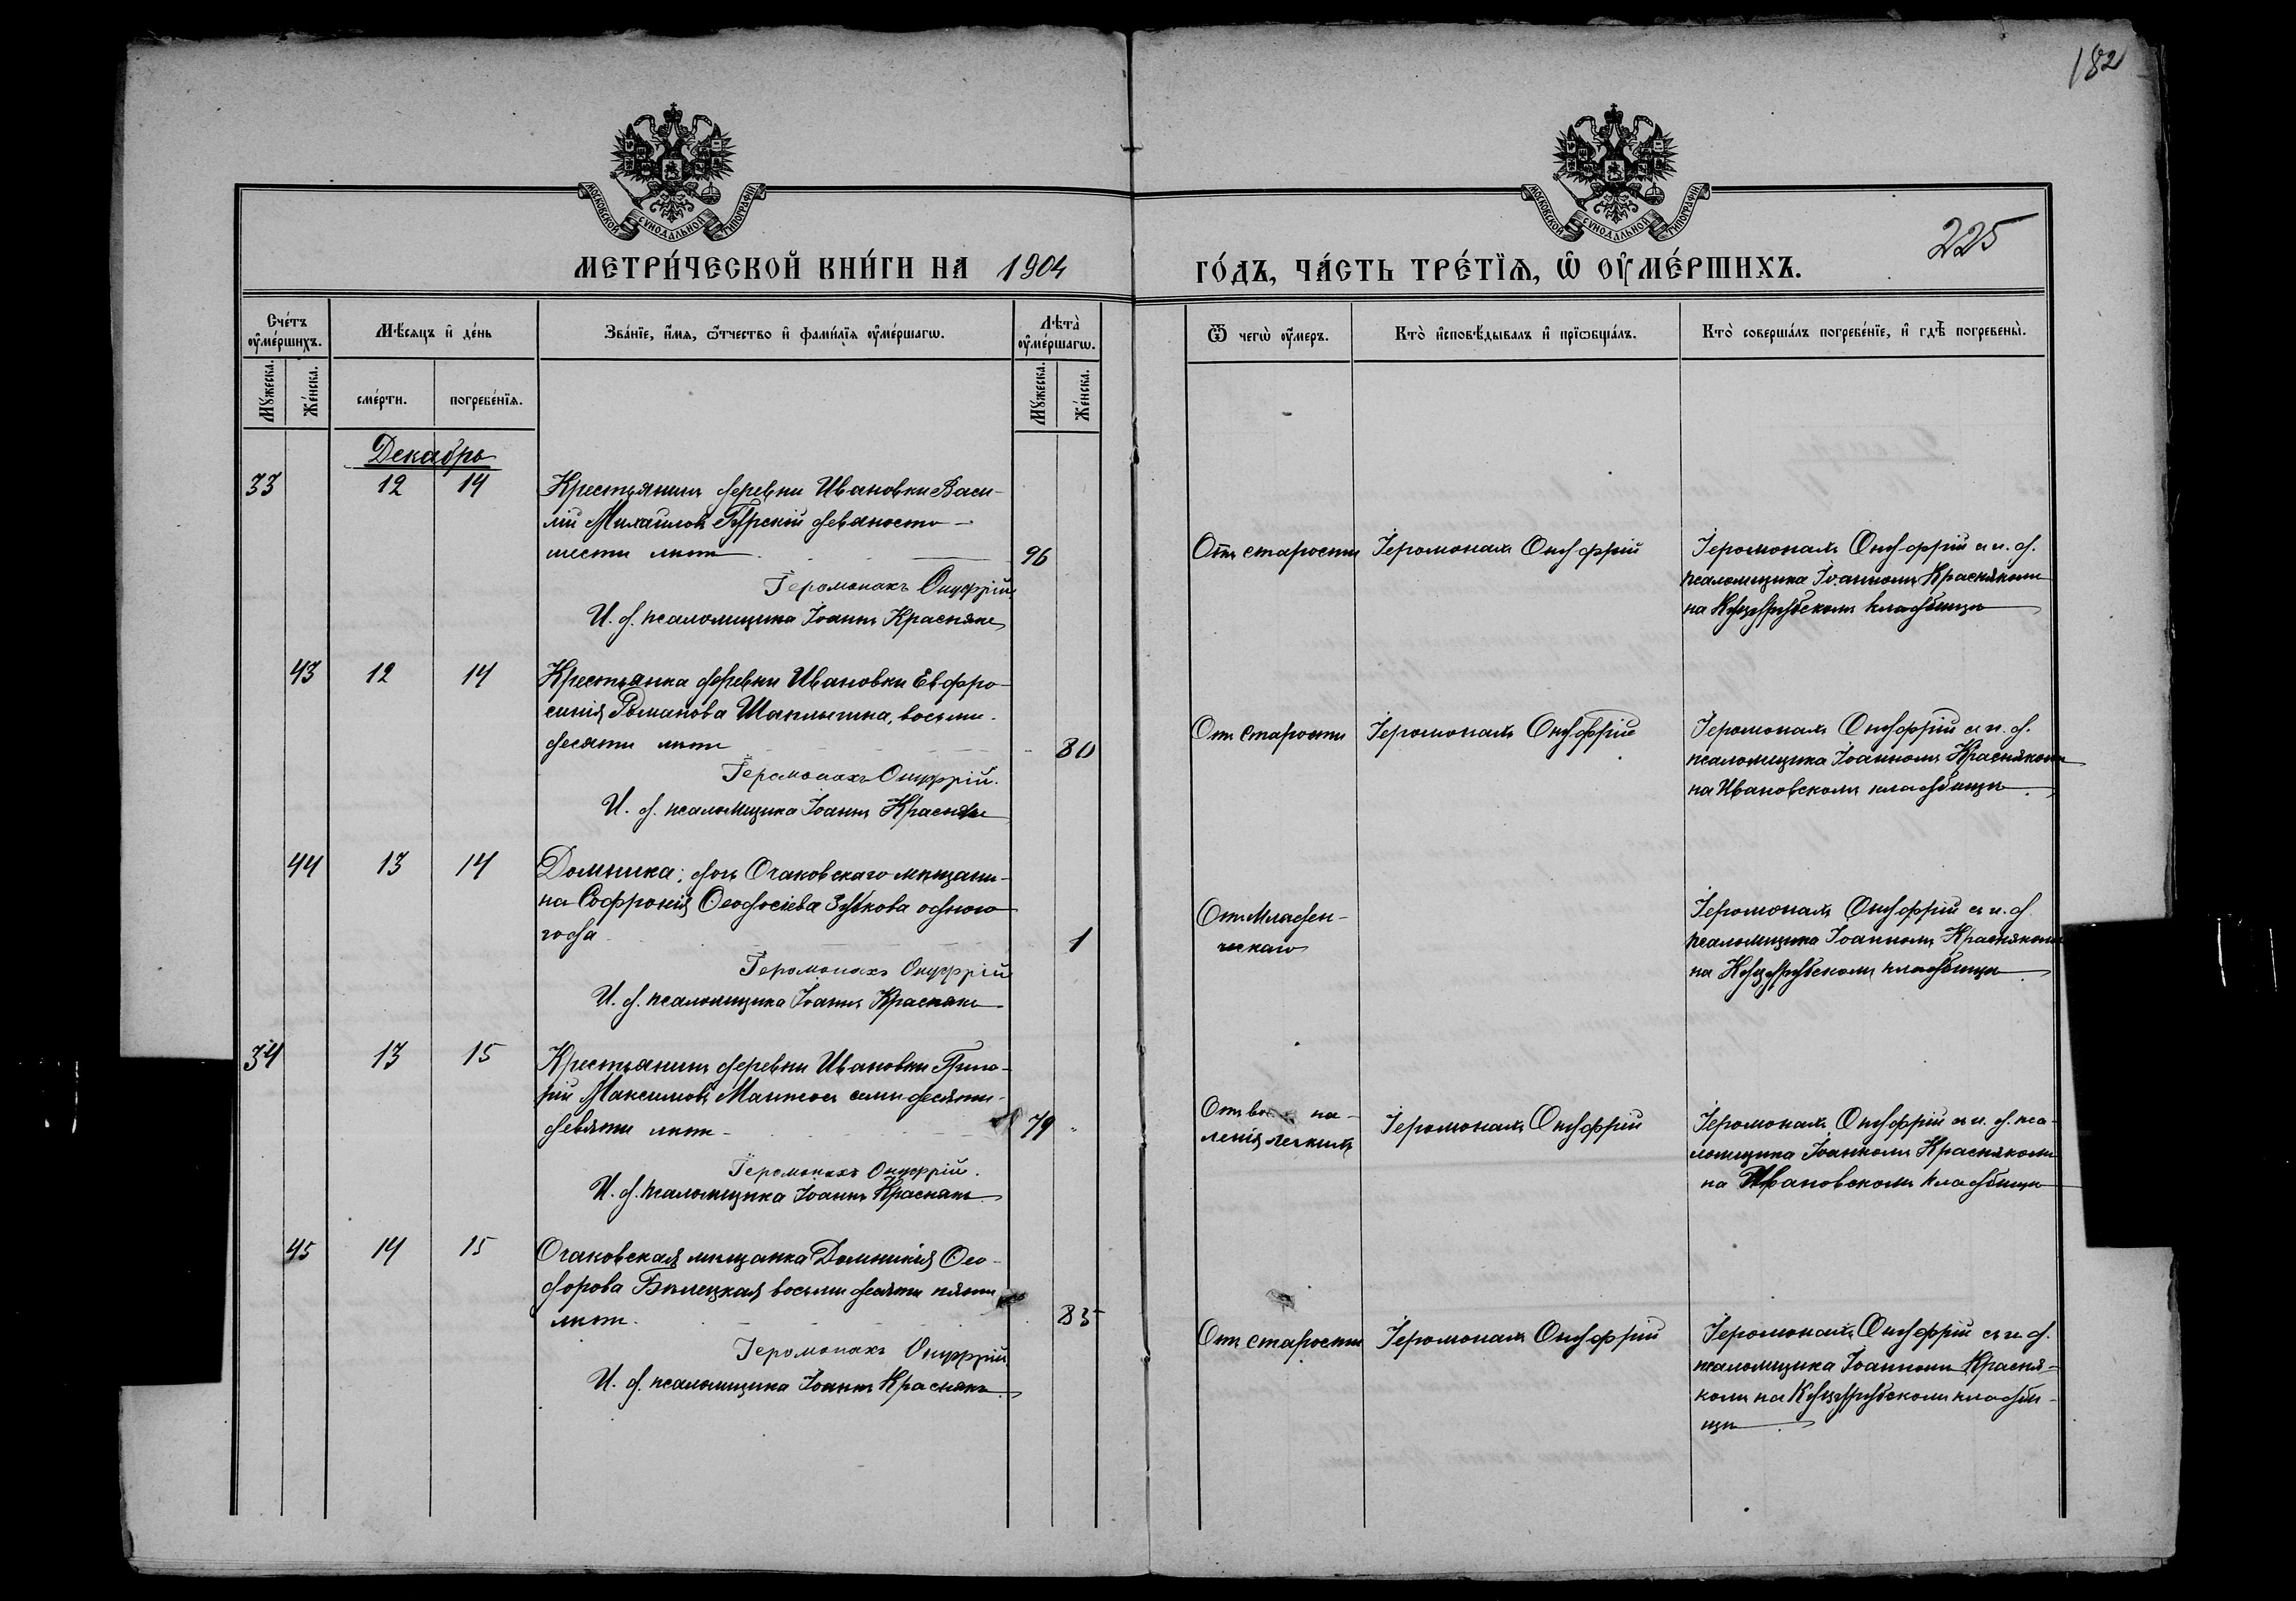 182
МОСКОВСКОЙ СУНОДАЛЬНОЙ ТИПОГРАФІИ
МОСКОВСКОЙ СУНОДАЛЬНОЙ ТИПОГРАФІИ
225
МЕТРИ́ЧЕСКОЙ КНИ́ГИ НА 1904 ГО́ДЪ, ЧА́СТЬ ТРЕ́ТЇѦ, Ѡ҆ ОУ҆МЕ́РШИХЪ.
Сче́тъ оу҆ме́ршихъ.
Мѣ́сяцъ и҆ де́нь
Зва́нїе, и҆́мя, ѻ҆́тчество и҆ фами́лїя оу҆ме́ршагѡ.
Лѣта̀ оу҆ме́ршагѡ.
Ѿ чегѡ̀ оу҆́меръ.
Кто̀ и҆сповѣ́дывалъ и҆ прїѡбща́лъ.
Кто̀ соверша́лъ погребе́нїе, и҆ гдѣ̀ погребены̀.
Му́жеска.
Же́нска.
сме́рти.
погребе́нїѧ.
Му́жеска.
Же́нска.
Декабрь
33 12 14 Крестьянинъ деревни Ивановки Васи-
лій Михаиловъ Гурскій девяносто
шести лѣтъ 96
Іеромонахъ Онуфрій
И. д. псаломщика Іоаннъ Краснякъ
Отъ старости
Іеромонахъ Онуфрій
Іеромонахъ Онуфрій съ и. д.
псаломщика Іоанномъ Краснякомъ
на Куцурубскомъ кладбищѣ
43 12 14 Крестьянка деревни Ивановки Евфро-
синія Романова Шаплыгина, восьми-
десяти лѣтъ 80
Іеромонахъ Онуфрій.
И. д. псаломщика Іоаннъ Краснякъ
Отъ старости
Іеромонахъ Онуфрій
Іеромонахъ Онуфрій съ и. д.
псаломщика Іоанномъ Краснякомъ
на Ивановскомъ кладбищѣ.
44 13 14 Домника, дочь Очаковскаго мѣщани-
на Софронія Ѳеодосіева Зубкова одного
года 1
Іеромонахъ Онуфрій
И. д. псаломщика Іоаннъ Краснякъ
Отъ младен-
ческаго
Іеромонахъ Онуфрій съ и. д.
псаломщика Іоанномъ Краснякомъ
на Куцурубскомъ кладбищѣ.
34 13 15 Крестьянинъ деревни Ивановки Григо-
рій Максимовъ семидесяти-
девяти лѣтъ 79
Іеромонахъ Онуфрій.
И. д. псаломщика Іоаннъ Краснякъ
Отъ па-
ленія легкихъ
Іеромонахъ Онуфрій
Іеромонахъ Онуфрій съ и. д. пса-
ломщика Іоанномъ Краснякомъ
на Ивановскомъ кладбищѣ
45 14 15 Очаковская мѣщанка Домникія Ѳео-
дорова Бѣлецкая восьмидесяти пяти
лѣтъ. 85
Іеромонахъ Онуфрій
И. д. псаломщика Іоаннъ Краснякъ.
Отъ старости
Іеромонахъ Онуфрій
Іеромонахъ Онуфрій съ и. д.
псаломщика Іоанномъ Красня-
комъ на Куцурубскомъ кладби-
щѣ.